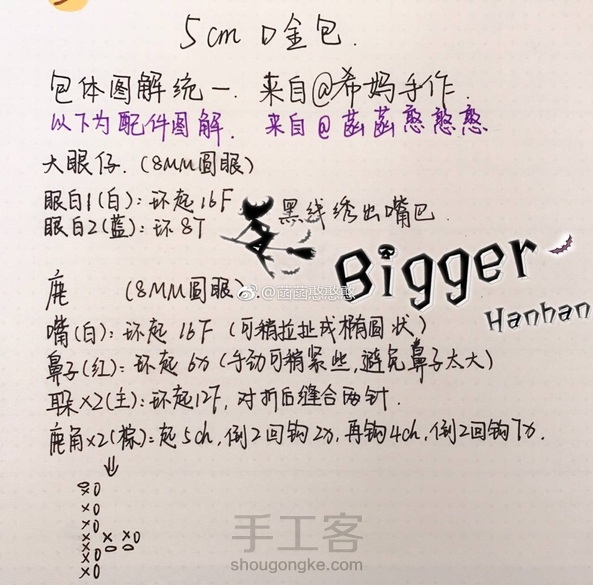 5cm 口金包.
包体图解统一. 来自@希妈手作.
以下为配件图解. 来自@菡菡憨憨憨
大眼仔. (8MM圆眼)
眼白1(白): 环起16F.
眼白2(蓝): 环8T
黑线绣出嘴巴.
Bigger
Hanhan
@菡菡憨憨憨
鹿 (8MM圆眼).
嘴(白): 环起16F (可稍拉扯成椭圆状)
鼻子(红): 环起6x (手动可稍紧些, 避免鼻子太大)
耳朵x2(主): 环起12F, 对折后缝合两针.
鹿角x2(棕): 起5ch, 倒2回钩2x, 再钩4ch, 倒2回钩7x.
x0
x0
x0
x0 x x0
x 0 0
x0
手工客
shougongke.com